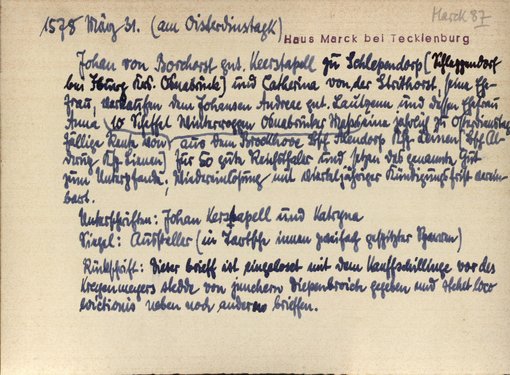 Marck 87
1578 März 31. (am Oisterdinstagk)
Haus Marck bei Tecklenburg
Johan von Borchorst gnt. Keerstapell zu Schlependorp (Schleppendorf
bei Iburg Krs. Osnabrück) und Catherina von der Strithorst, seine Ehe-
frau, verkaufen dem Johansen Andreae gnt. und dessen Ehefrau
Anna 10 Scheffel Winterroggen Osnabrücker jährlich zu Osterdienstag
fällige Rente von aus dem Brockhove Bff. Ksp. Lienen (Bff.
Ksp. Lienen) für 50 gute Reichstaler und setzen das genannte Gut
zum Unterpfande. Wiedereinlösung mit vierteljähriger Kündigungsfrist verein-
bart.
Unterschriften: Johan Kerstapell und Katryna
Siegel: Aussteller (in innen gespitzter Sparren)
Rückschrift: Dieser brieff ist eingelost mit dem Kauffschillinge vor des
Kreyenmeyers stedde von junchern Diepenbroich gegeben und stehet loco
evictionis neben noch anderen brieffen.